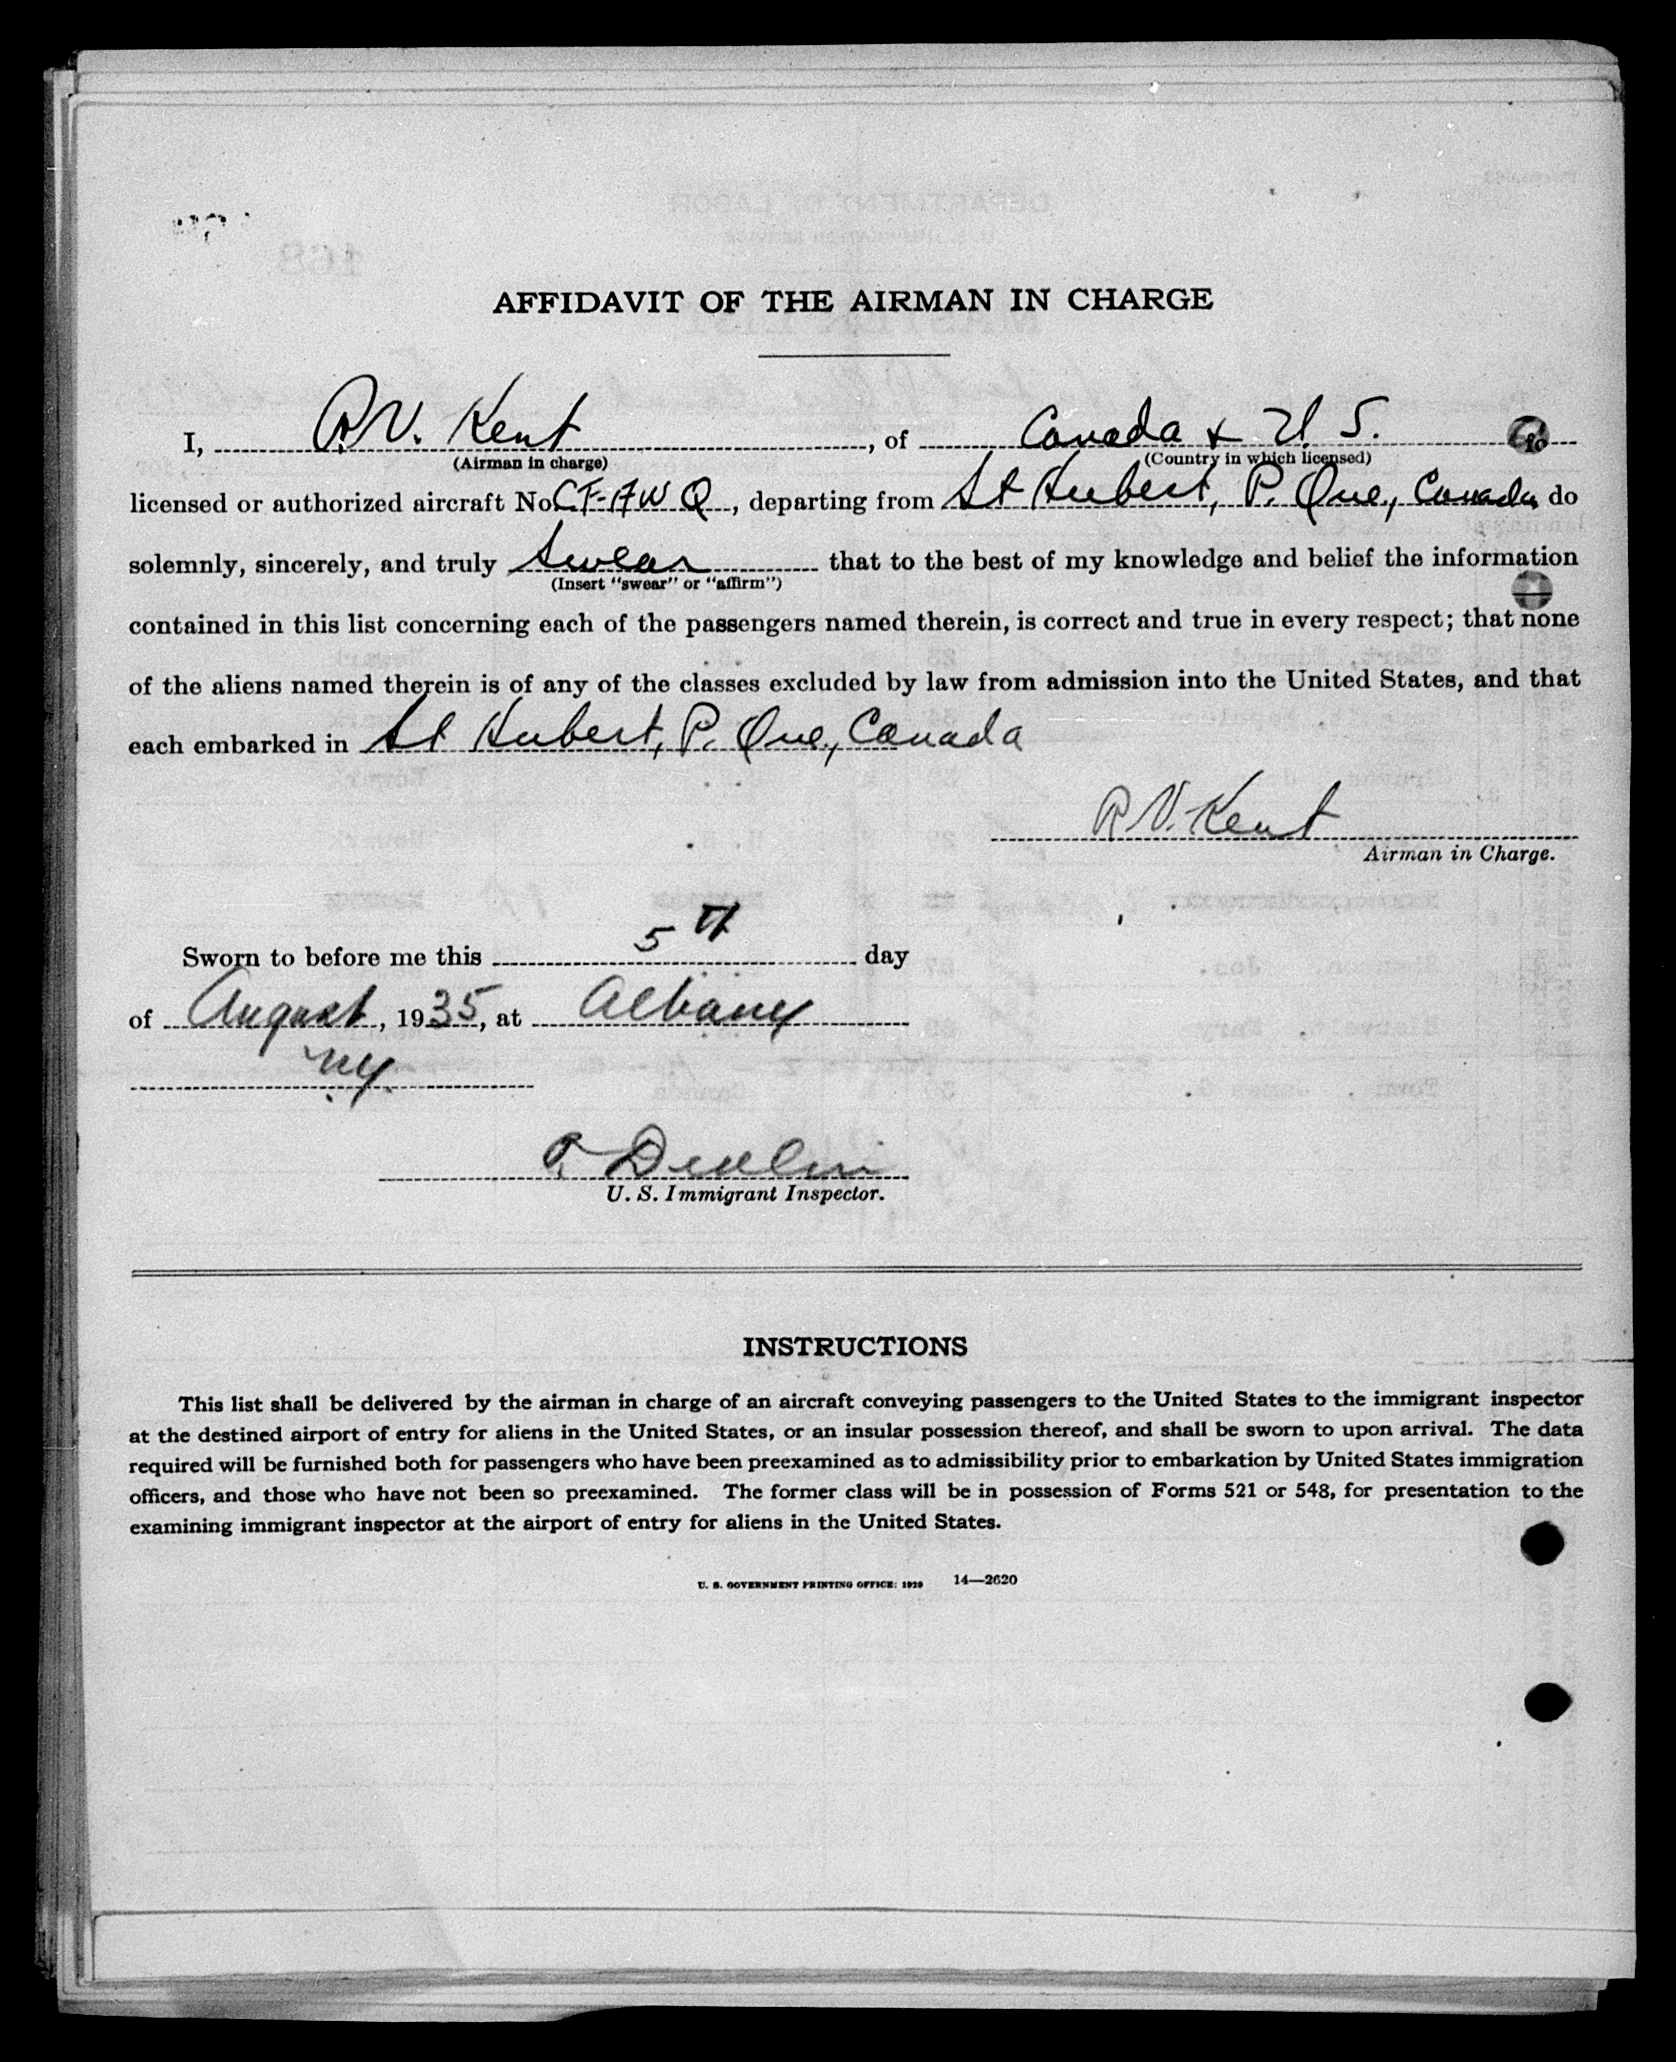 AFFIDAVIT OF THE AIRMAN IN CHARGE
I, R.V. Kent, of Canada & U.S.
(Airman in charge) (Country in which licensed)
licensed or authorized aircraft No. CF-AWQ, departing from St Hubert, P. Que., Canada, do
solemnly, sincerely, and truly swear that to the best of my knowledge and belief the information
(Insert "swear" or "affirm")
contained in this list concerning each of the passengers named therein, is correct and true in every respect; that none
of the aliens named therein is of any of the classes excluded by law from admission into the United States, and that
each embarked in St Hubert, P. Que., Canada
R.V. Kent
Airman in Charge.
Sworn to before me this 5th day
of August, 1935, at Albany
N.Y.
P. Devlin
U. S. Immigrant Inspector.
INSTRUCTIONS
This list shall be delivered by the airman in charge of an aircraft conveying passengers to the United States to the immigrant inspector
at the destined airport of entry for aliens in the United States, or an insular possession thereof, and shall be sworn to upon arrival. The data
required will be furnished both for passengers who have been preexamined as to admissibility prior to embarkation by United States immigration
officers, and those who have not been so preexamined. The former class will be in possession of Forms 521 or 548, for presentation to the
examining immigrant inspector at the airport of entry for aliens in the United States.
U. S. GOVERNMENT PRINTING OFFICE: 1929 14—2620